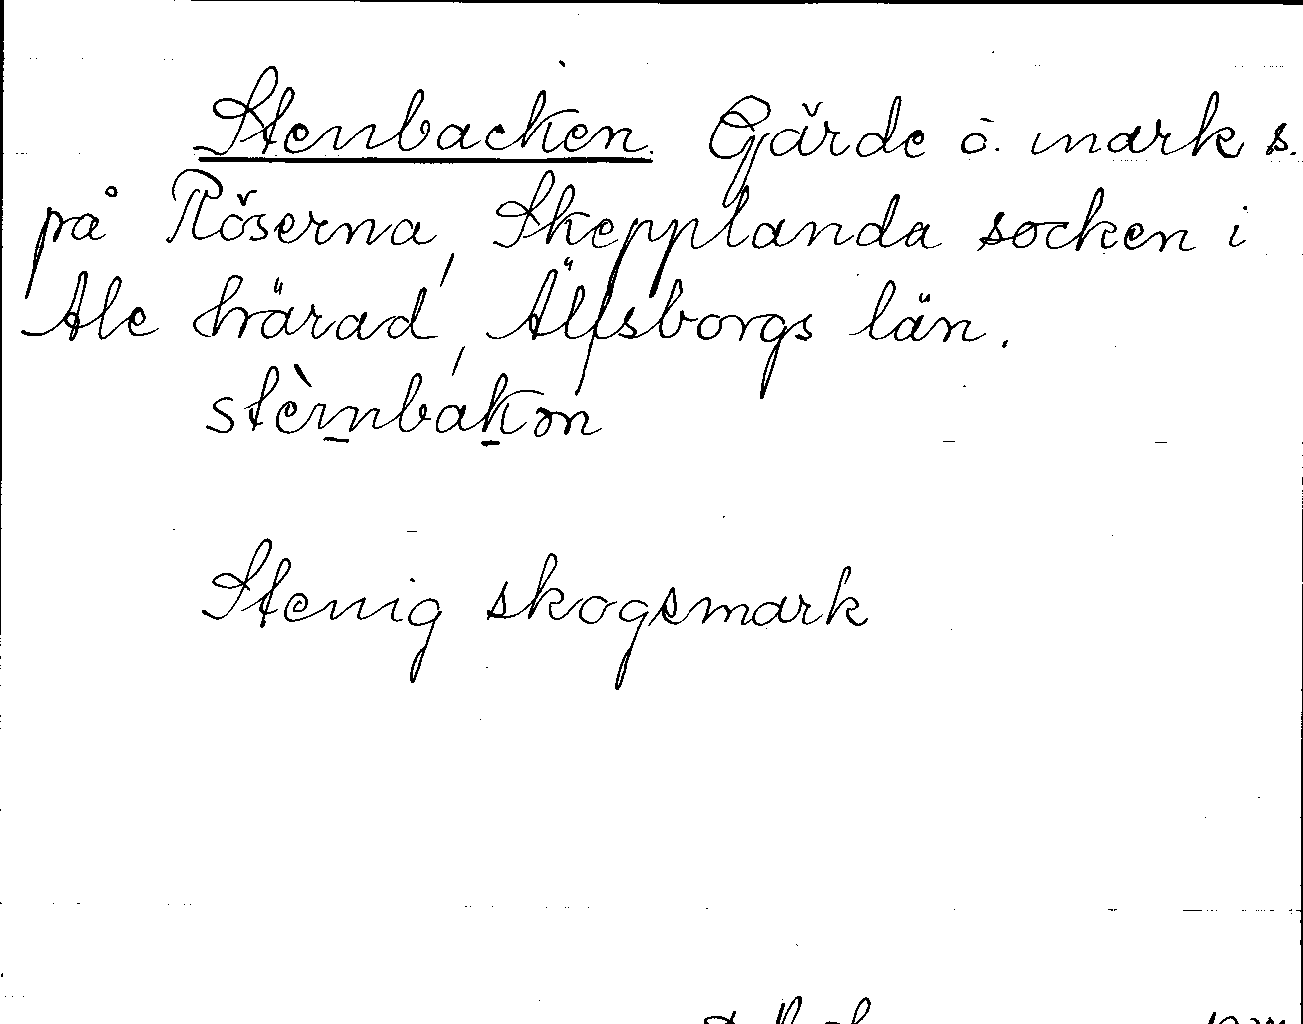 Stenbacken. Gärde o. mark s.
på Röserna, Skepplanda socken i
Ale härad, Älfsborgs län.
Stenig skogsmark